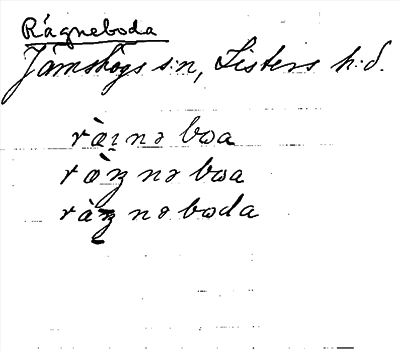 Rågneboda
Jämshögs s:n, Listers h:d.
ràı̣ nə bωa
ràʒ nə bωa
ràʒ nə bωda